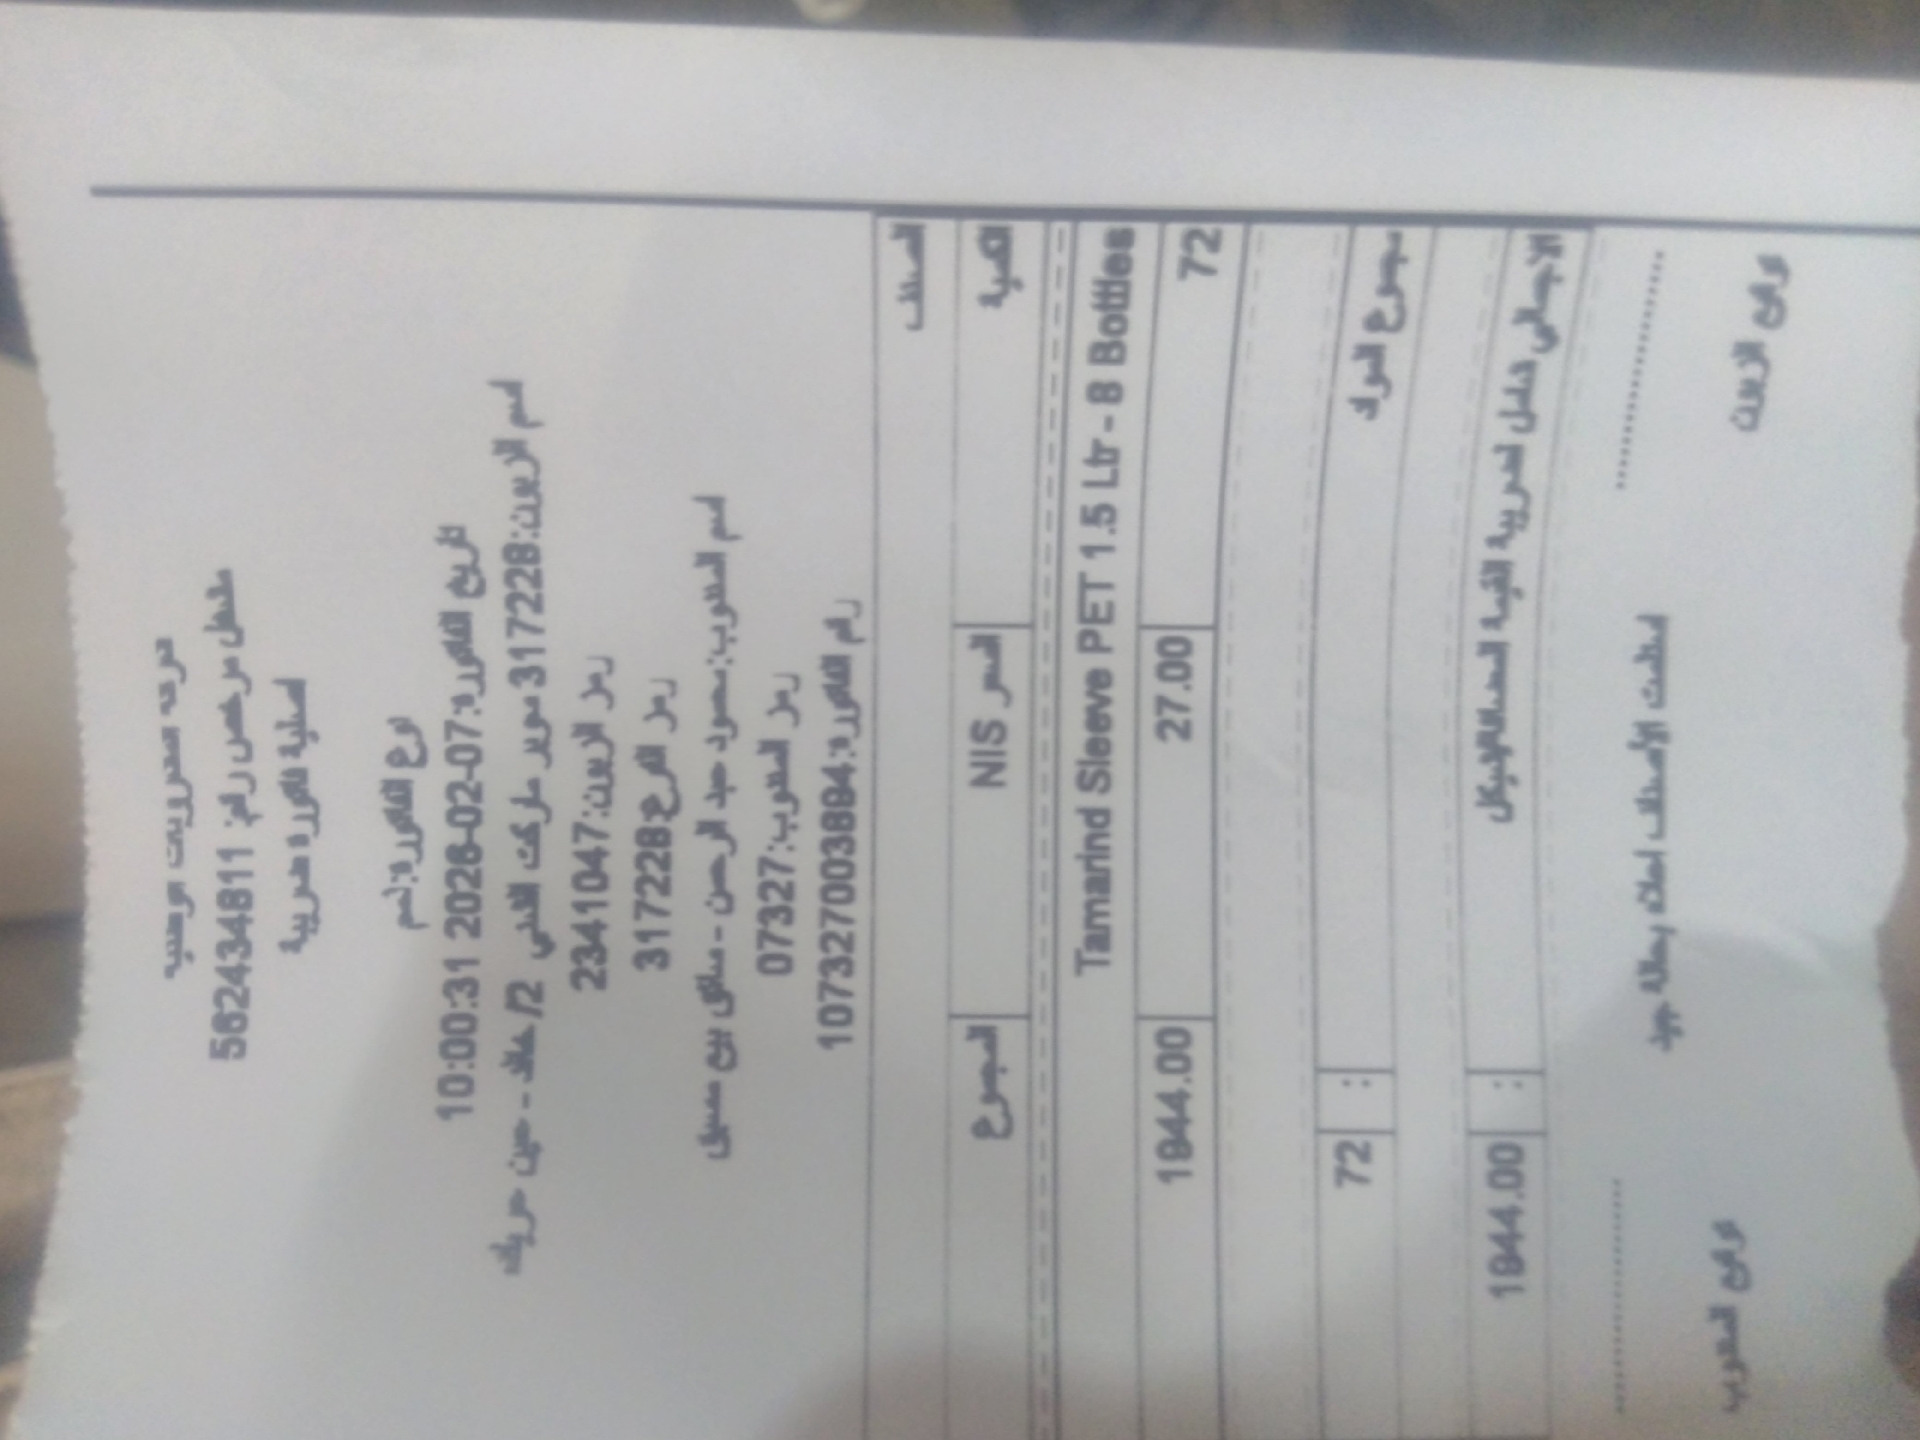 شركة مشروبات
مشغل مرخص رقم: 562434811
اصلية فاتورة ضريبية
نوع الفاتورة:ذمم
تاريخ الفاتورة:2026-02-07 10:00:31
اسم الزبون:317228سوبر ماركت 2/ خلاد - حسين
رمز الزبون:2341047
رمز الفرع:317228
اسم المندوب:محمود عبد الرحمن - سائق بيع مسبق
رمز المندوب:07327
رقم الفاتورة:1073270003894
الصنف
الكمية السعر NIS المجموع
Tamarind Sleeve PET 1.5 Ltr - 8 Bottles
72 27.00 1944.00
مجموع المواد : 72
الاجمالي شامل لضريبة القيمة المضافة/شيكل : 1944.00
استلمت الأصناف اعلاه بحالة جيدة
توقيع الزبون توقيع المندوب